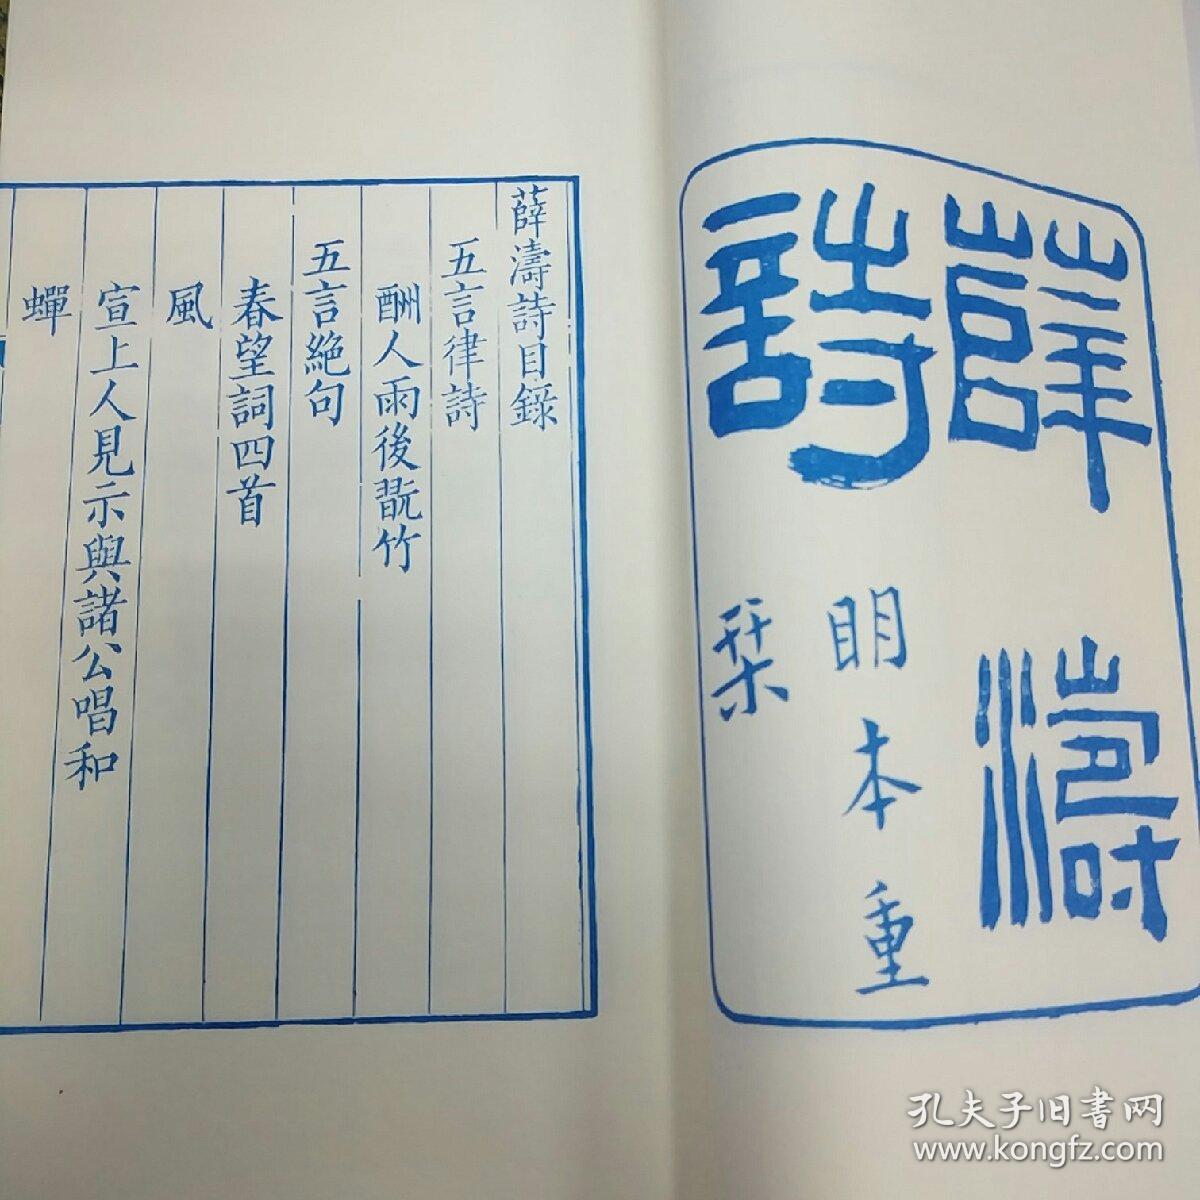 薛濤
詩
明本重
栞
薛濤詩目錄
五言律詩
酬人雨後翫竹
五言絶句
春望詞四首
風
宣上人見示與諸公唱和
蟬
孔夫子旧书网
www.kongfz.com